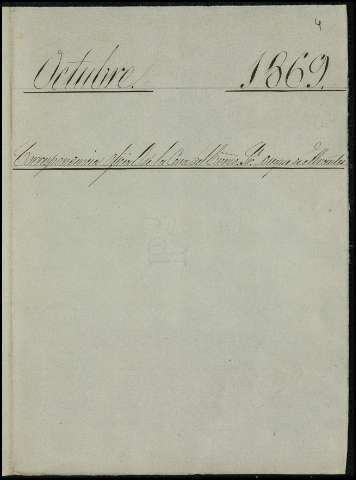 4
Octubre. 1869.
Correspondencia oficial de la Casa del Excmo. Sr. Duque de